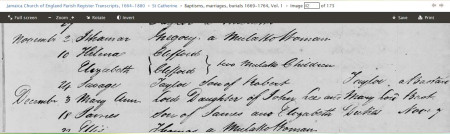 Jamaica Church of England Parish Register Transcripts, 1664-1880 > St Catherine > Baptisms, marriages, burials 1669-1764, Vol. 1 > image of 173
Full screen Zoom Rotate Invert Save Print
November 2 Ishamar Gregory. a Mulatto Woman
10 Helena Clifford
Elizabeth Clifford } two Mulatto Children
24 Savage Taylor Son of Robert Taylor. a Bastard
December 3 Mary Ann Daughter of John Lee and Mary Lord
18 James Son of James and Elizabeth Dukes Nov 7
Thomas a Mulatto Woman